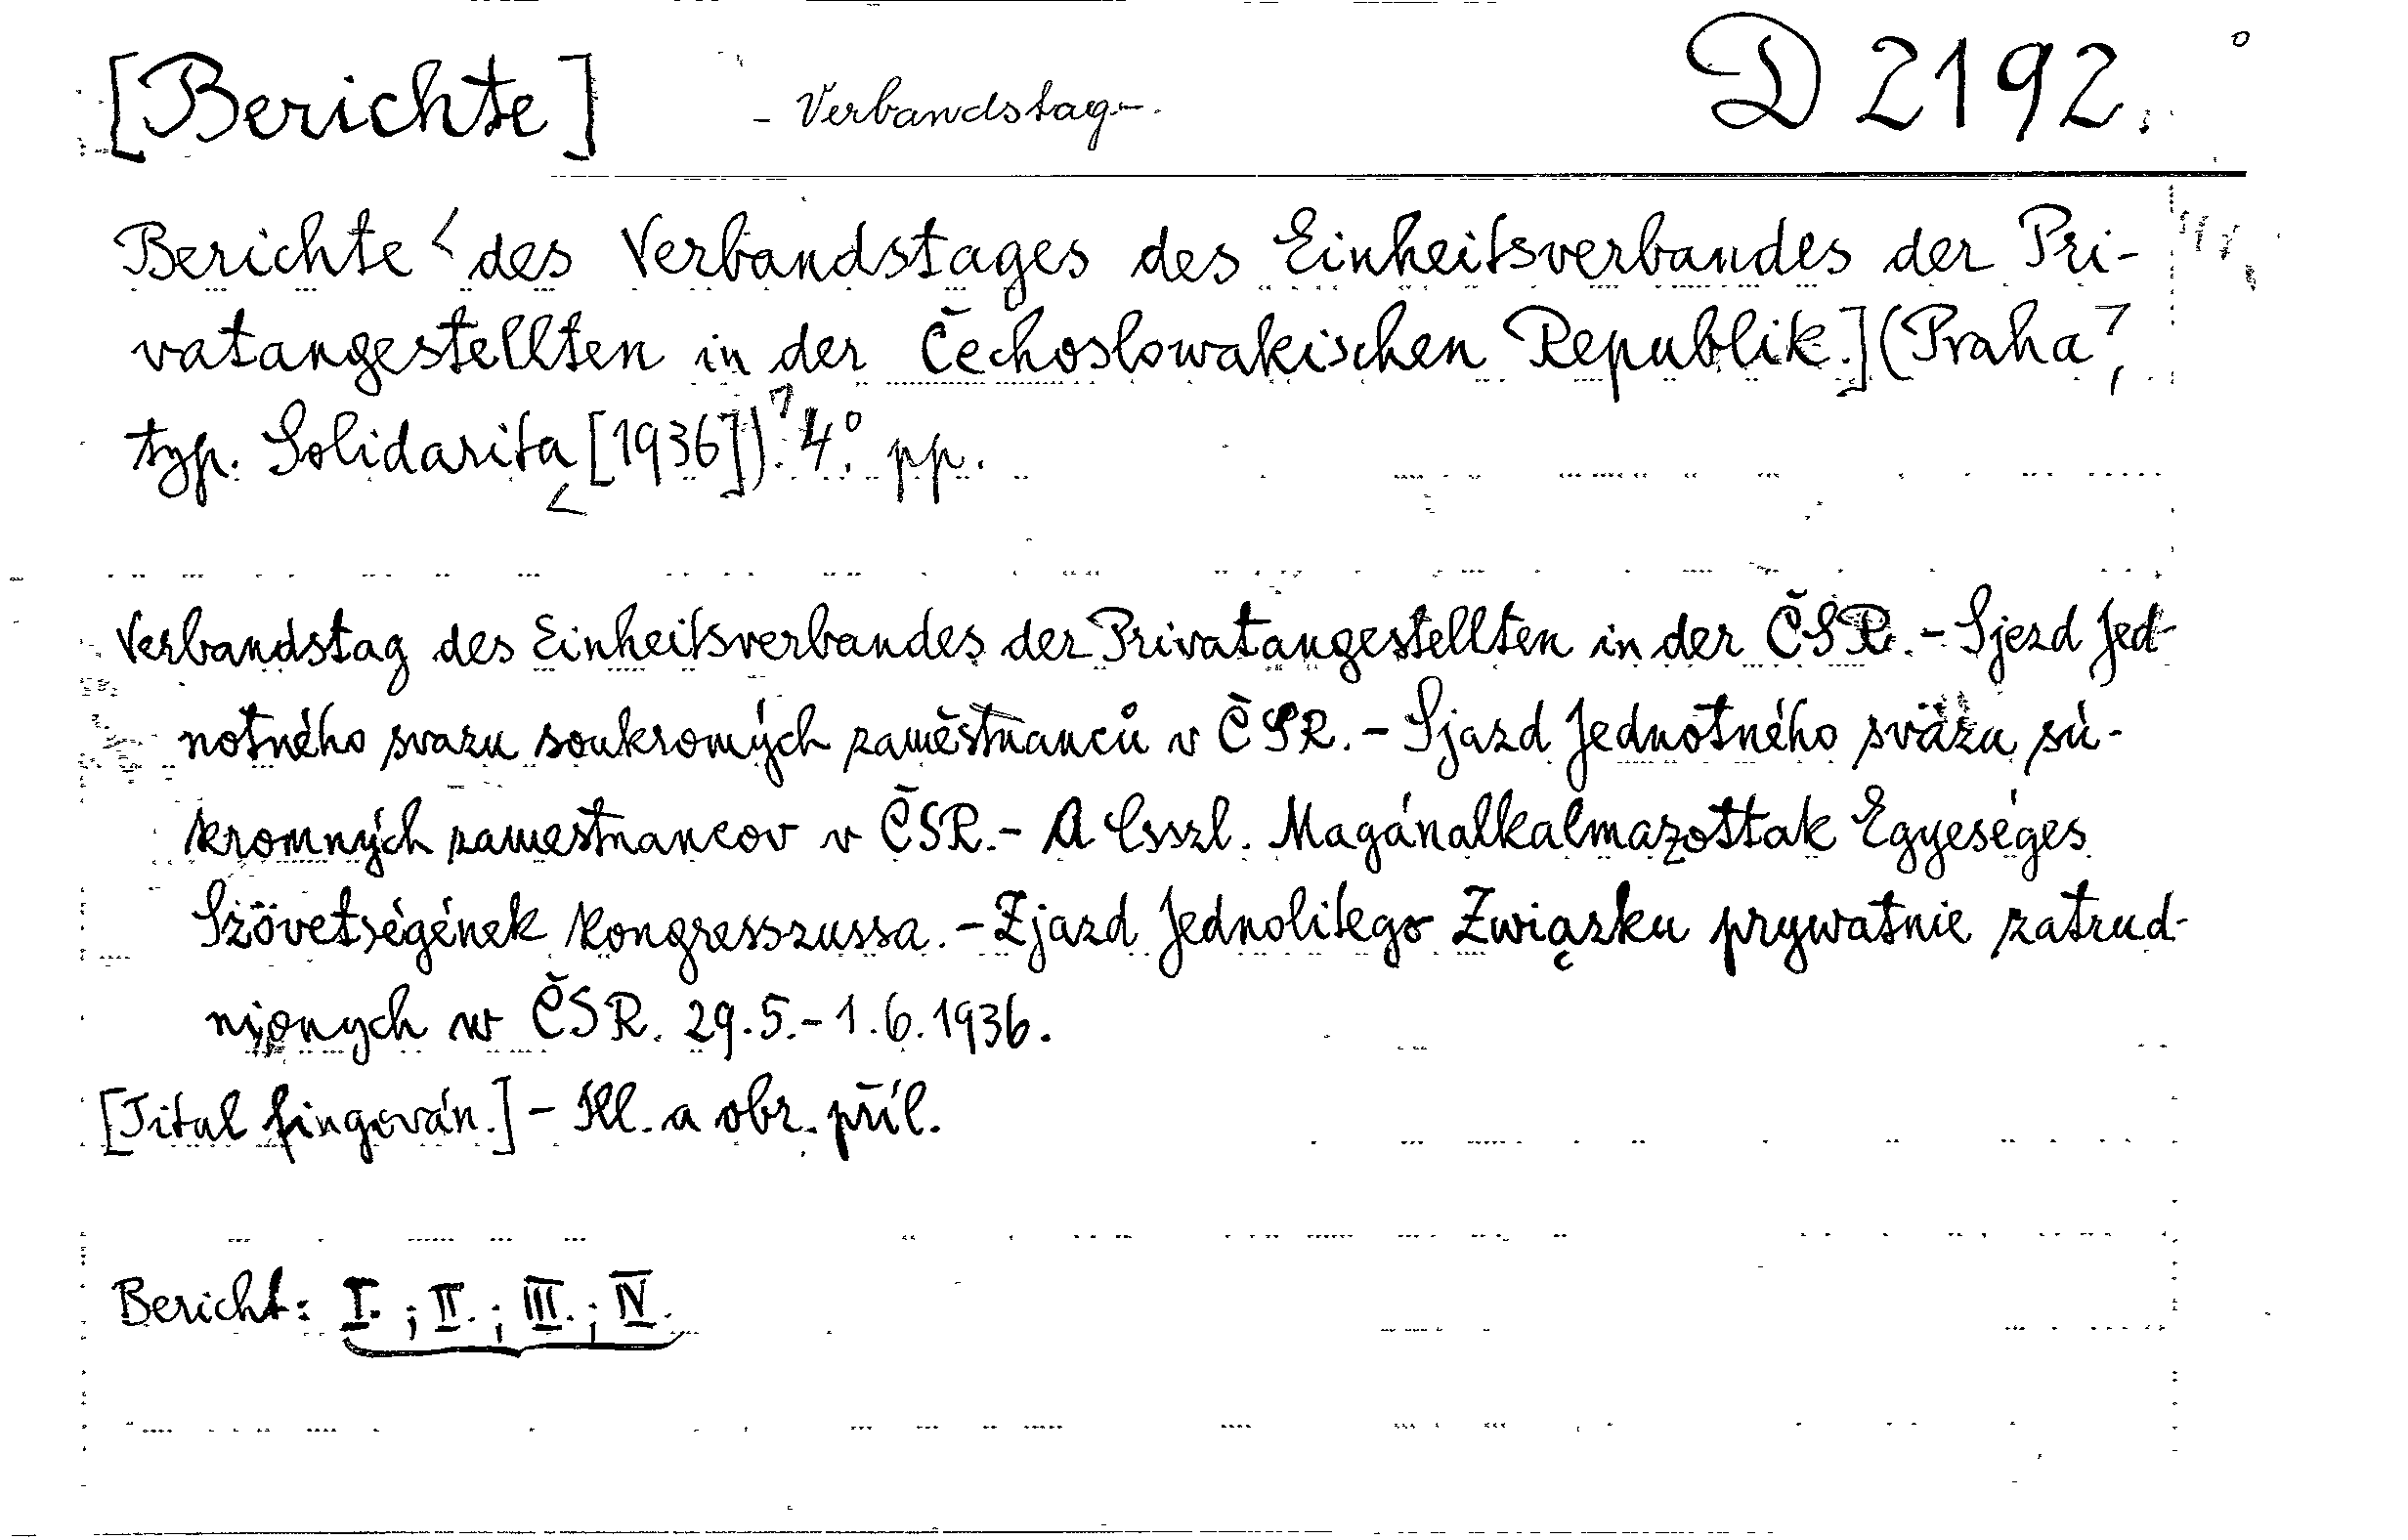 [Berichte] - Verbandstag -. D 2192.
Berichte < des Verbandstages des Einheitsverbandes der Pri-
vatangestellten in der Čechoslowakischen Republik.] (Praha,
typ. Solidarita [1936]). 4°. pp.
Verbandstag des Einheitsverbandes der Privatangestellten in der ČSR. - Sjezd Jed-
notného svazu soukromých zaměstnanců v ČSR. - Sjazd Jednotného sväzu sú-
kromných zamestnancov v ČSR. - A Csszl. Magánalkalmazottak Egyeséges
Szövetségének kongresszussa. - Zjazd Jednolitego Związku prywatnie zatrud-
nionych w ČSR. 29.5.-1.6.1936.
[Titul fingován.] - Ill. a obr. příl.
Bericht: I. ; II. ; III. ; IV.